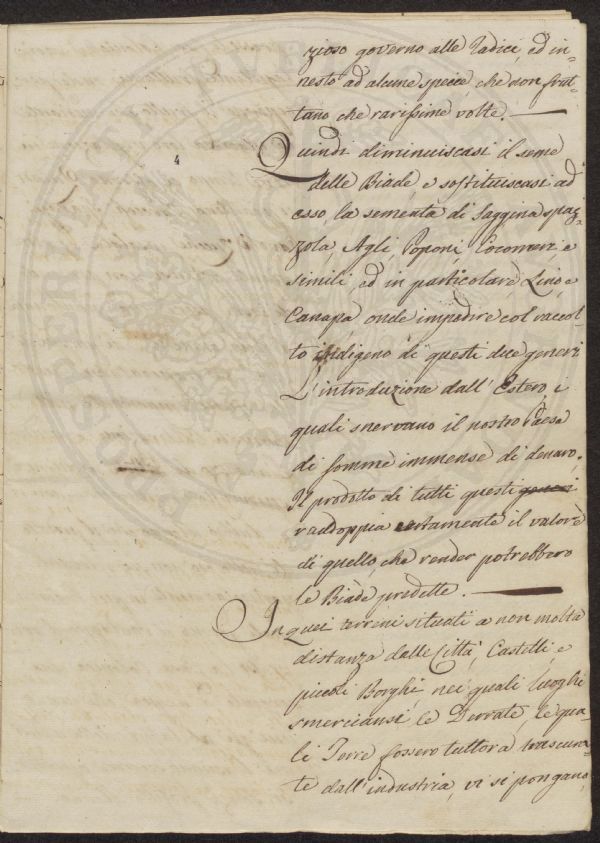 zioso governo alle Radici, ed in-
nesto ad alcune specie, che non frut-
tano che rarissime volte.
4
Quindi diminuiscasi il seme
delle Biade, e sostituiscasi ad
esso, la sementa di Saggina spaz-
zola, Agli, Poponi, Cocomeri, e
simili, ed in particolare, Lino, e
Canapa, onde impedire col raccol-
to indigeno di questi due generi
L'introduzione dall'Estero, i
quali snervano il nostro Paese
di somme immense di denaro.
Il prodotto di tutti questi generi
raddoppia certamente il valore
di quello, che render potrebbero
le Biade predette.
In quei terrini situati a non molta
distanza dalle Città, Castelli, e
piccoli Borghi nei quali luoghi
smerciansi le Derrate, le qua-
li Terre fossero tuttora trascura-
te dall'industria, vi si pongano,